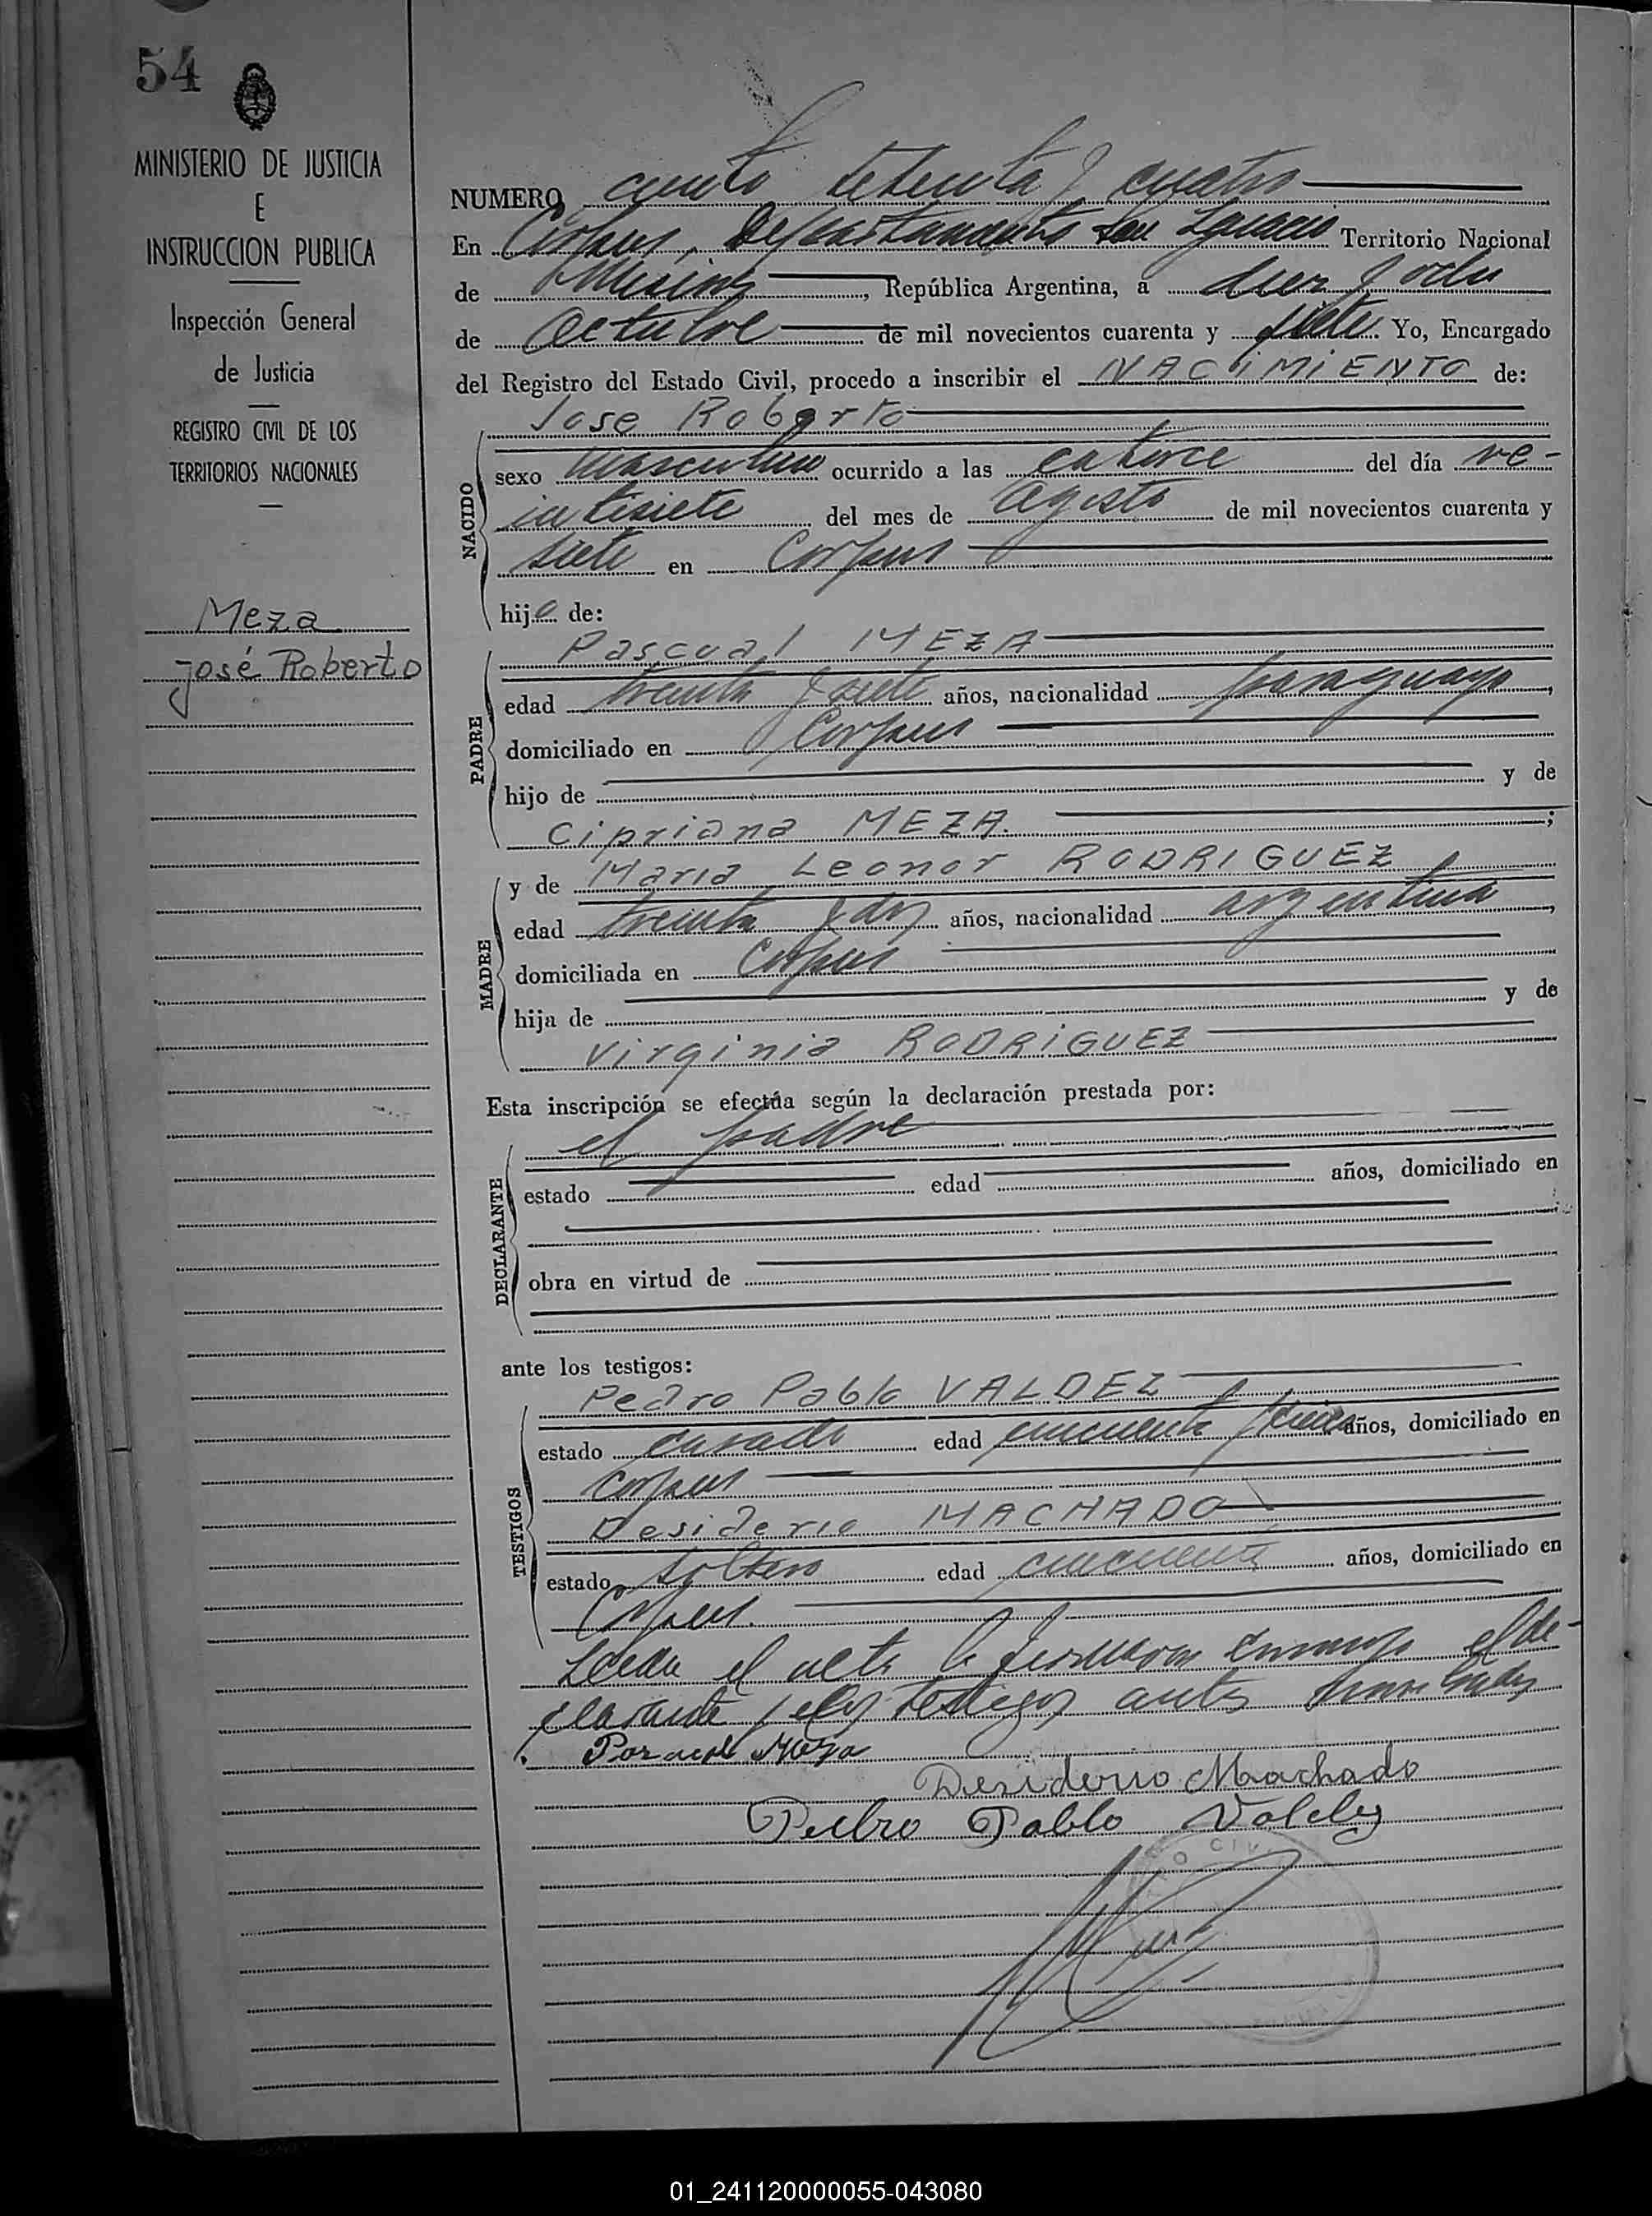 54
MINISTERIO DE JUSTICIA
E
INSTRUCCION PUBLICA
Inspección General
de Justicia
REGISTRO CIVIL DE LOS
TERRITORIOS NACIONALES
Meza
José Roberto
NUMERO ciento setenta y cuatro
En Corpus, Departamento San Ignacio Territorio Nacional
de Misiones, República Argentina, a diez y ocho
de Octubre de mil novecientos cuarenta y siete. Yo, Encargado
del Registro del Estado Civil, procedo a inscribir el NACiMiENTO de:
NACIDO
Jose Roberto
sexo masculino ocurrido a las catorce del día ve-
intisiete del mes de Agosto de mil novecientos cuarenta y
siete en Corpus
hijo de:
PADRE
Pascual MEZA
edad treinta y siete años, nacionalidad paraguaya,
domiciliado en Corpus
hijo de y de
Cipriana MEZA. ;
MADRE
y de Maria Leonor RODRIGUEZ
edad treinta y dos años, nacionalidad argentina,
domiciliada en Corpus
hija de y de
Virginia RODRiGUEZ
Esta inscripción se efectúa según la declaración prestada por:
DECLARANTE
el padre
estado edad años, domiciliado en
obra en virtud de
ante los testigos:
TESTIGOS
Pedro Pablo VALDEZ
estado casado edad cincuenta y años, domiciliado en
Corpus
Desiderio MACHADO
estado soltero edad cincuenta años, domiciliado en
Corpus.
Leida el acta la firmaron conmigo el de-
clarante y los testigos antes nombrados
. Pascual Meza
Desiderio Machado
Pedro Pablo Valdez
01_241120000055-043080